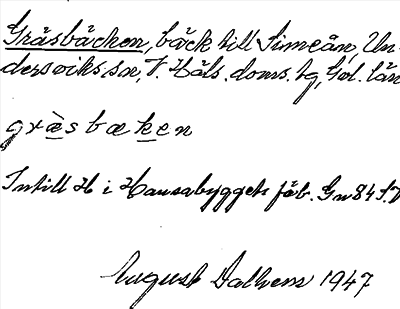 Gräsbäcken, bäck till Sinneån, Un-
dersviks sn, V. Häls. doms. tg, Gol. län
græsbæken
Intill H i Hansabygget fäb. Gw 84 S.V
August Dalhem 1947